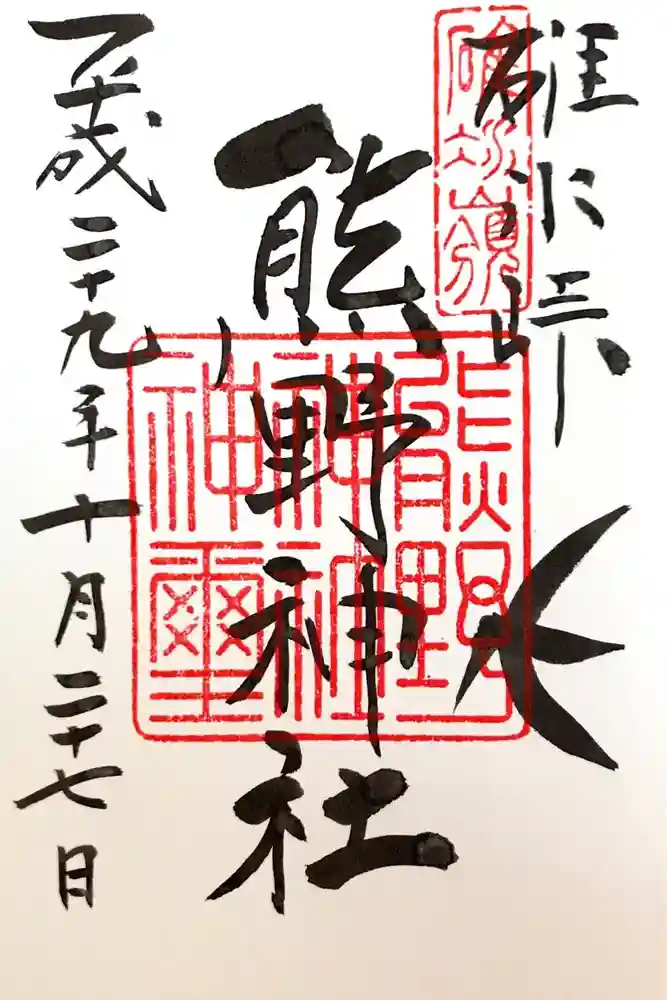 碓氷峠
碓氷嶺
熊野神社
熊野
神社
神璽
平成二十九年十月二十七日